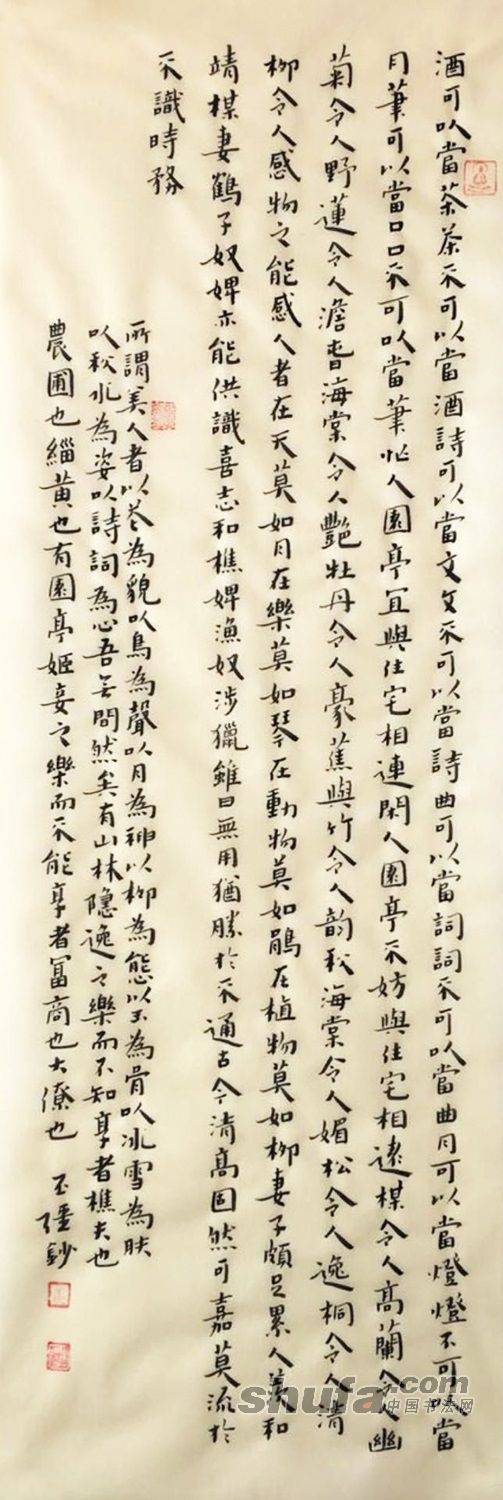 酒可以當茶茶不可以當酒詩可以當文文不可以當詩曲可以當詞詞不可以當曲月可以當燈燈不可以當
月筆可以當口口不可以當筆忙人園亭宜與住宅相連閑人園亭不妨與住宅相遠楳令人高蘭令人幽
菊令人野蓮令人澹春海棠令人艷牡丹令人豪蕉與竹令人韵秋海棠令人媚松令人逸桐令人清
柳令人感物之能感人者在天莫如月在樂莫如琴在動物莫如鵑在植物莫如柳妻子頗足累人羨和
靖楳妻鶴子奴婢亦能供識喜志和樵婢漁奴涉獵雖曰無用猶勝於不通古今清高固然可嘉莫流於
不識時務
所謂美人者以花為貌以鳥為聲以月為神以柳為態以玉為骨以冰雪為膚
以秋水為姿以詩詞為心吾無間然矣有山林隱逸之樂而不知享者樵夫也
農圃也緇黃也有園亭姬妾之樂而不能享者富商也大僚也 鈔
shufa.com
中国书法网